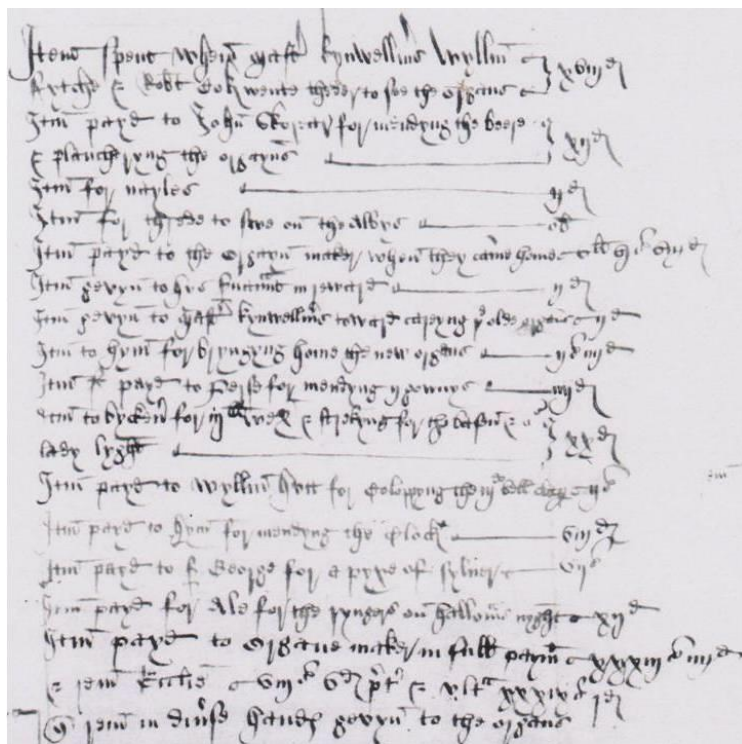 Item spent when mast kynwellm's Wyllm
kytche & Robt Cok wente theder to see the organs xviijd
Itm payd to John Skorear for mendyng the beere
& plancheryng the organs xijd
Itm for nayles ijd
Itm for threde to sowe on the albys ob
Itm payd to the organ maker when they came home vli js viijd
Itm gevyn to hys s'uants in reward ijd
Itm gevyn to mast kynwellm's toward careyng ye olde organs ijd
Itm to hym for bryngyng home the new organs ijs iiijd
Itm payd to Perse for mendyng ij pownys iiijd
Itm to for iij li wex & strekyng for the &
lady lyght xxd
Itm payd to Wyllm hott for the iijde bell clapp ijs
Itm payd to hym for mendyng the Clock viijd
Itm payd to George for a pyxe of sylver vijs
Itm payd for Ale for the ryngers on hallowms nyght xijd
Itm payd to organ maker in full paymt xxxiijs iiijd
& rem viijs vd & ult xxxixs jd
rem in div'se hands gevyn to the organs